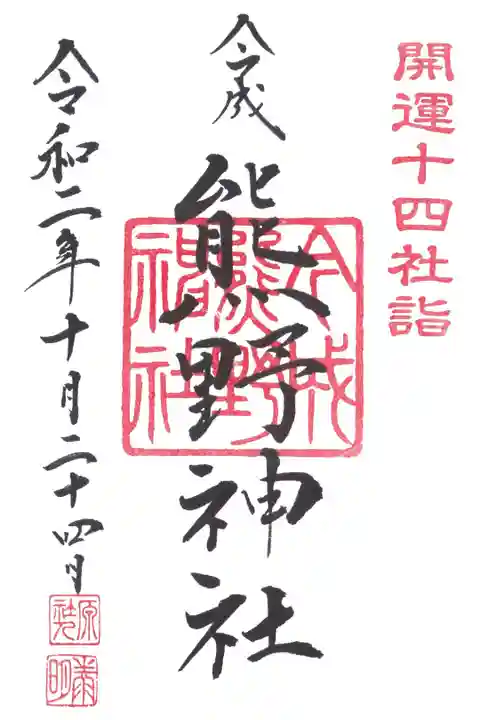 開運十四社詣
今成
熊野神社
今成
熊野
神社
令和二年十月二十四日